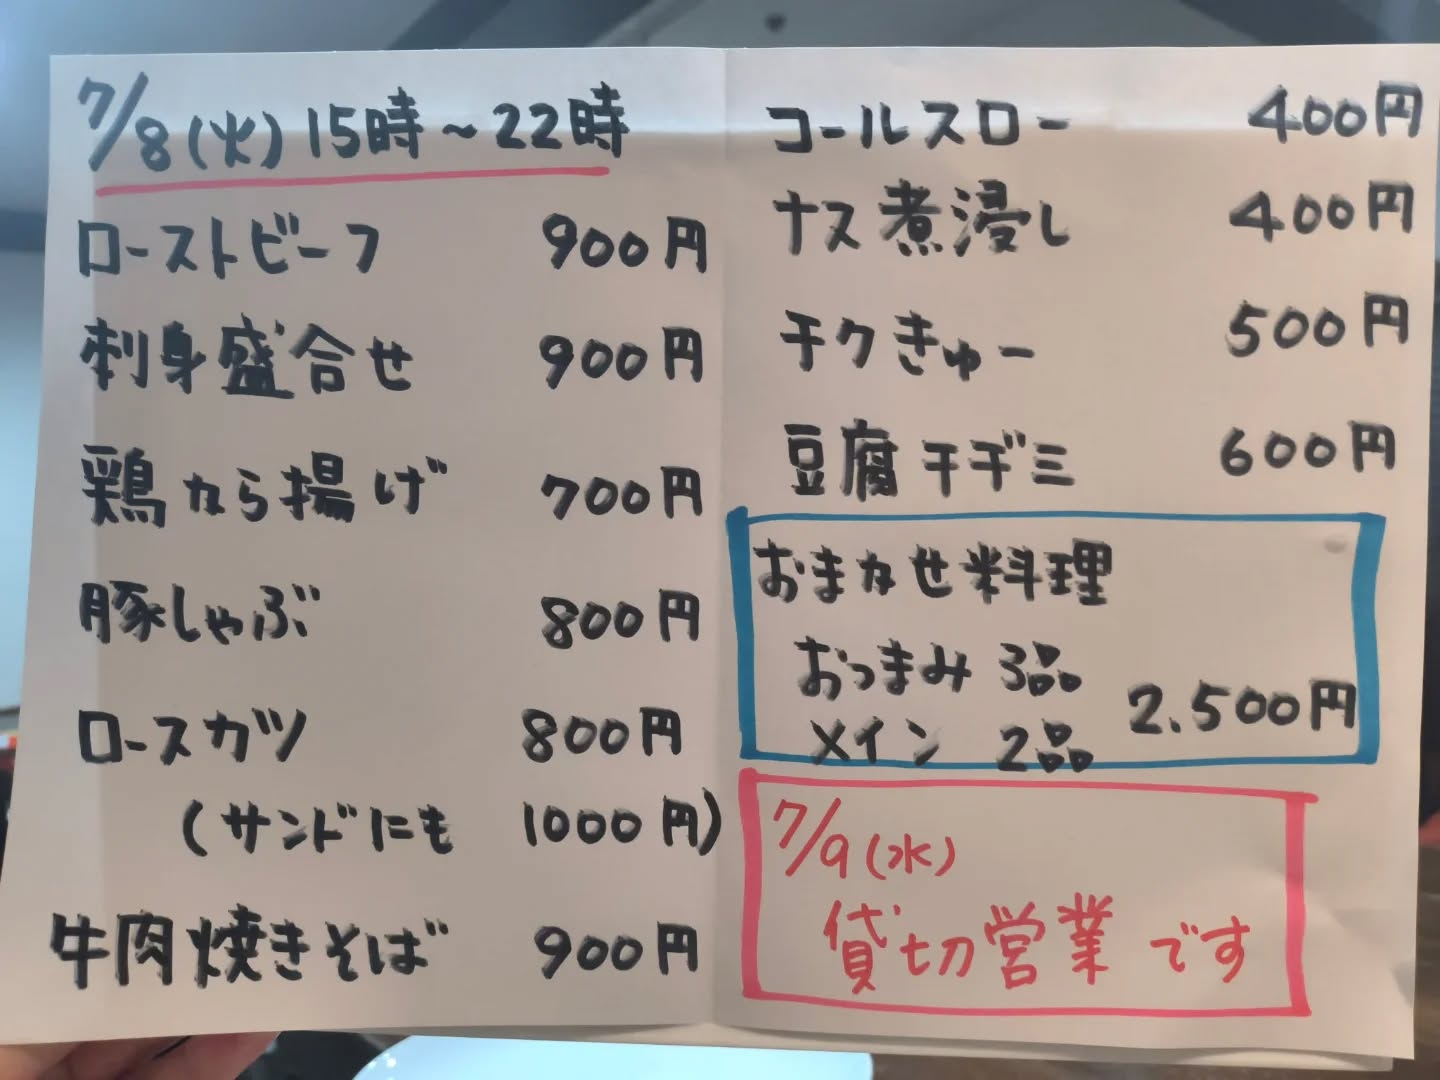 7/8(火)15時～22時
ローストビーフ 900円
刺身盛合せ 900円
鶏から揚げ 700円
豚しゃぶ 800円
ロースカツ 800円
(サンドにも 1000円)
牛肉焼きそば 900円
コールスロー 400円
ナス煮浸し 400円
チクきゅー 500円
豆腐チヂミ 600円
おまかせ料理
おつまみ 3品
メイン 2品 2.500円
7/9(水)
貸切営業です